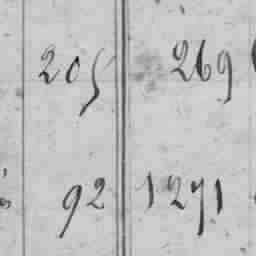 205 269
92 1271